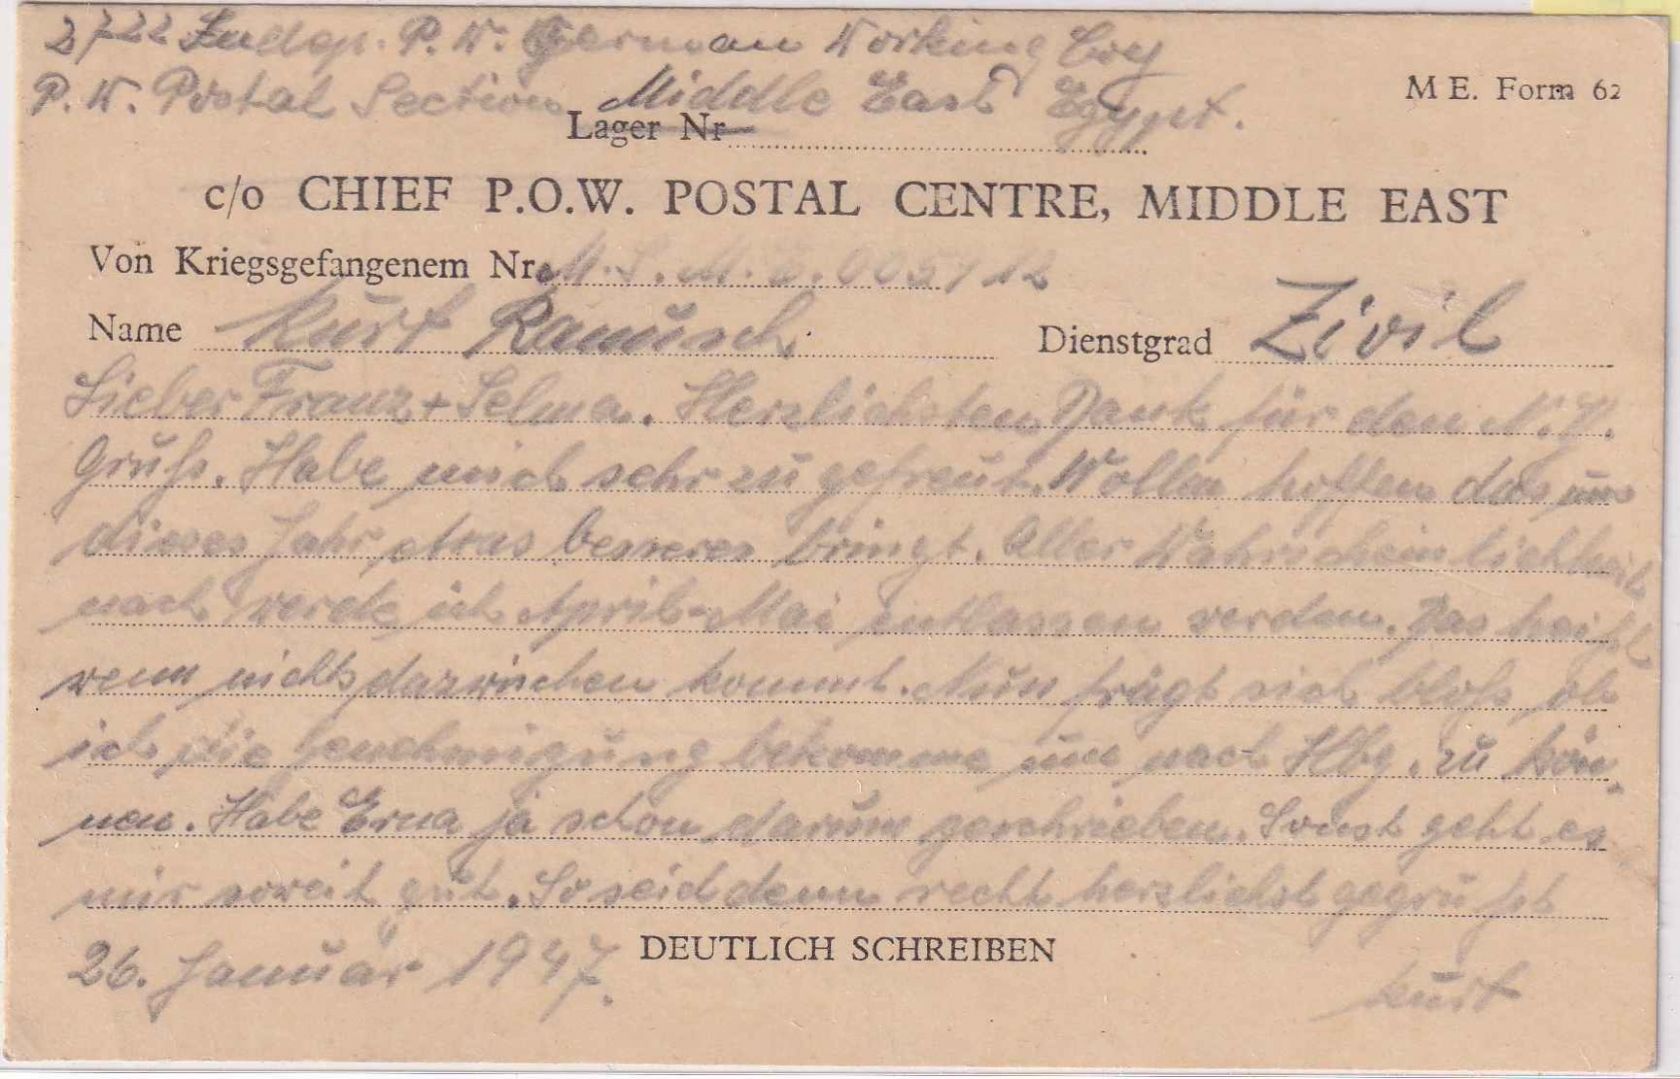 2722 Indep. P.W. German Working Coy
P.W. Postal Section Middle East Egypt.
M E. Form 62
Lager Nr
c/o CHIEF P.O.W. POSTAL CENTRE, MIDDLE EAST
Von Kriegsgefangenem Nr.
Name Kurt Dienstgrad Zivil
Lieber Franz + Selma. Herzlichsten Dank für den
Gruß. Habe mich sehr zu gefreut. Wollen hoffen das uns
dieses Jahr etwas besseres bringt. Aller Wahrscheinlichkeit
nach werde ich April-Mai entlassen werden. Das heißt
wenn nichts dazwischen kommt. Nun frägt sich bloß ob
ich die Genehmigung bekomme um nach Hbg. zu kön-
nen. Habe Erna ja schon darum geschrieben. Sonst geht es
mir soweit gut. So seid denn recht herzlichst gegrüßt
26. Januar 1947. DEUTLICH SCHREIBEN
Kurt